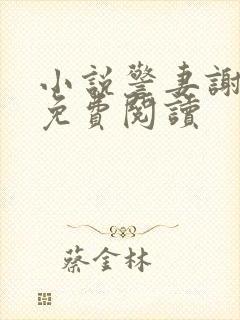 小說警妻謝
免費閱讀
蔡金林